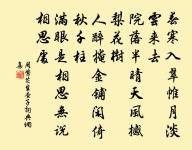 春寒入翠帷月淡
雲來去
院落半晴天風撼
梨花樹
人醉掩金鋪閑倚
秋千柱
滿眼是相思無說
相思處
周紫芝生查子詞典網
集